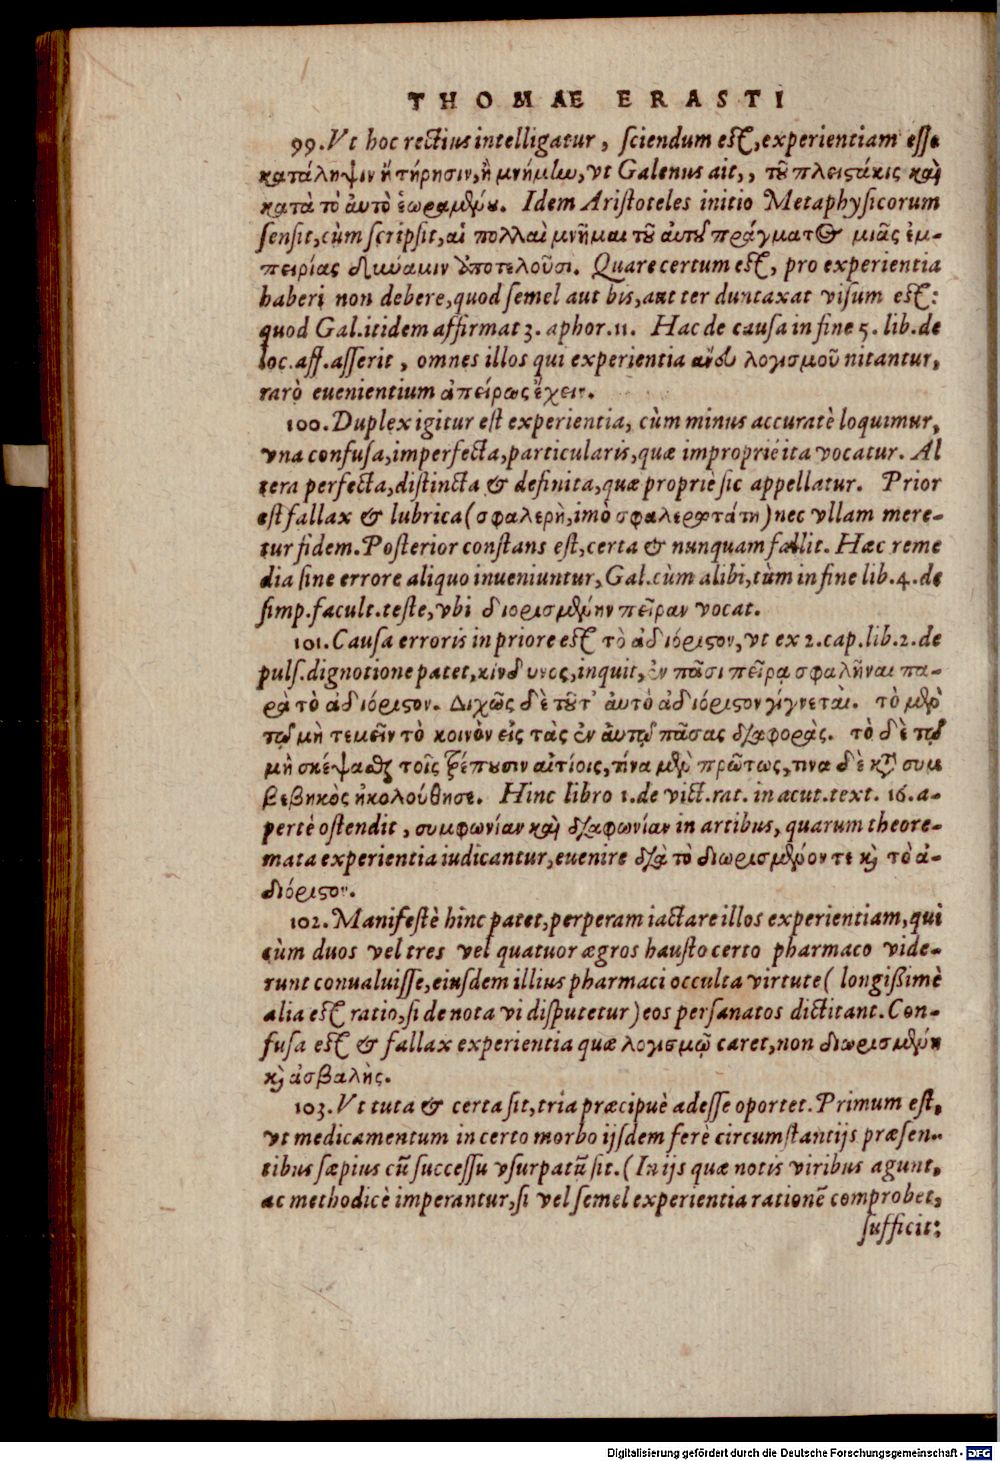 THOMÆ ERASTI
99. Vt hoc rectius intelligatur, sciendum est, experientiam esse
κατάληψιν ἢ τήρησιν, ἢ μνήμην, vt Galenus ait,, τοῦ πλειστάκις καὶ
κατὰ τὸ ἀυτὸ ἑωραμένου. Idem Aristoteles initio Metaphysicorum
sensit, cùm scripsit, αἱ πολλαὶ μνῆμαι τοῦ ἀυτοῦ πράγματος μιᾶς ἐμ-
πειρίας δύναμιν ἀποτελοῦσι. Quare certum est, pro experientia
haberi non debere, quod semel aut bis, aut ter duntaxat visum est:
quod Gal. itidem affirmat 3. aphor. 11. Hac de causa in fine 5. lib. de
loc. aff. asserit, omnes illos qui experientia ἄνευ λογισμοῦ nitantur,
rarò euenientium ἀπείρως ἔχειν.
100. Duplex igitur est experientia, cùm minus accuratè loquimur,
vna confusa, imperfecta, particularis, quæ impropriè ita vocatur. Al
tera perfecta, distincta & definita, quæ propriè sic appellatur. Prior
est fallax & lubrica (σφαλερὴ, imò σφαλερωτάτη) nec vllam mere-
tur fidem. Posterior constans est, certa & nunquam fallit. Hæc reme
dia sine errore aliquo inueniuntur, Gal. cùm alibi, tùm in fine lib. 4. de
simp. facult. teste, vbi διορισμένην πεῖραν vocat.
101. Causa erroris in priore est τὸ ἀδιόριστον, vt ex 2. cap. lib. 2. de
puls. dignotione patet, κίνδυνος, inquit, ἐν πᾶσι πεῖρα σφαλῆναι πα-
ρὰ τὸ ἀδιόριστον. Διχῶς δὲ τοῦτ᾽ ἀυτὸ ἀδιόριστον γίγνεται. τὸ μὲν
τῷ μὴ τεμεῖν τὸ κοινὸν εἰς τὰς ἐν ἀυτῷ πᾶσας διαφορὰς. τὸ δὲ τῷ
μὴ σκέψασθαι τοῖς τρέπουσιν αἰτίοις, τίνα μὲν πρῶτως, τινα δὲ κατὰ συμ
βεβηκὸς ἠκολούθησε. Hinc libro 1. de vict. rat. in acut. text. 16. a-
pertè ostendit, συμφωνίαν καὶ διαφωνίαν in artibus, quarum theore-
mata experientia iudicantur, euenire διὰ τὸ διωρισμένον τε καὶ τὸ ἀ-
διόριστον.
102. Manifestè hinc patet, perperam iactare illos experientiam, qui
cùm duos vel tres vel quatuor ægros hausto certo pharmaco vide-
runt conualuisse, eiusdem illius pharmaci occulta virtute (longißimè
alia est ratio, si de nota vi disputetur) eos persanatos dictitant. Con-
fusa est & fallax experientia quæ λογισμῷ caret, non διωρισμένη
καὶ ἀσβαλὴς.
103. Vt tuta & certa sit, tria præcipuè adesse oportet. Primum est,
vt medicamentum in certo morbo ijsdem ferè circumstantijs præsen-
tibus sæpius cũ successu vsurpatũ sit. (In ijs quæ notis viribus agunt,
ac methodicè imperantur, si vel semel experientia rationẽ comprobet,
sufficit:
Digitalisierung gefördert durch die Deutsche Forschungsgemeinschaft - DFG